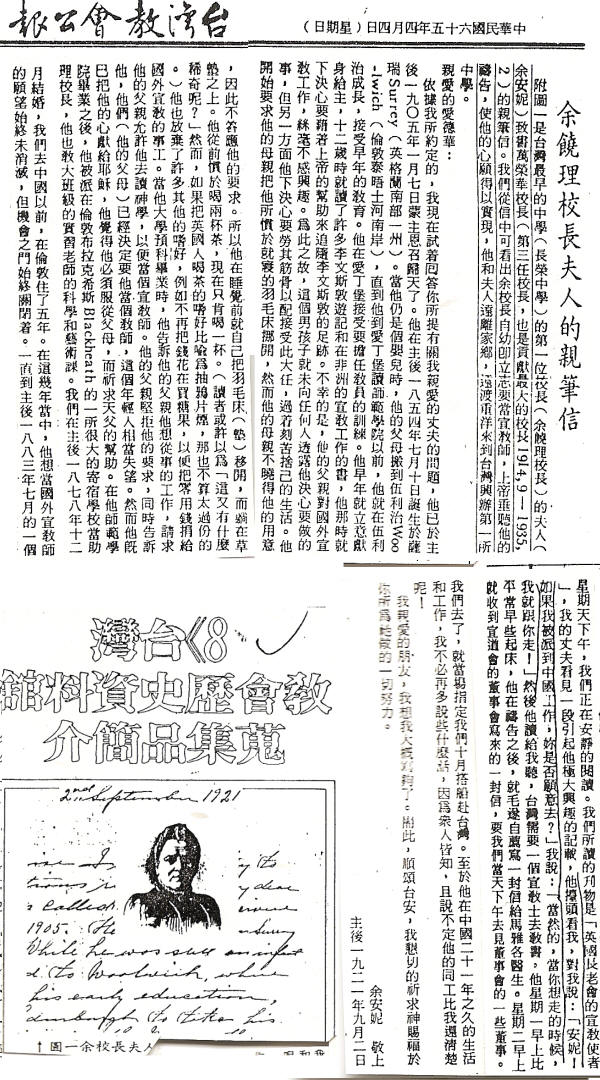 台灣教會公報
中華民國六十五年四月四日（星期日）
余饒理校長夫人的親筆信
附圖一是台灣最早的中學（長榮中學）的第一位校長（余饒理校長）的夫人（
余安妮）致書萬榮華校長（第三任校長，也是貢獻最大的校長1914,9—1935,
2）的親筆信。我們從信中可看出余校長自幼卽立志要當宣教師，上帝垂聽他的
禱告，使他的心願得以實現，他和夫人遠離家鄉，遠渡重洋來到台灣興辦第一所
中學。
親愛的愛德華：
依據我所約定的，我現在試着回答你所提有關我親愛的丈夫的問題，他已於主
後一九〇五年一月七日蒙主恩召歸天了。他在主後一八五四年七月十日誕生於薩
瑞Surrey（英格蘭南部一州）。當他仍是個嬰兒時，他的父母搬到伍利治Woo
-lwich（倫敦泰晤士河南岸），直到他到愛丁堡讀師範學院以前，他就在伍利
治成長，接受早年的教育。他在愛丁堡接受要擔任教員的訓練。他早年就立意獻
身給主，十二歲時就讀了許多李文斯敦遊記和在非洲的宣教工作的書，他那時就
下決心要藉着上帝的幫助來追隨李文斯敦的足跡。不幸的是，他的父親對國外宣
教工作，絲毫不感興趣。爲此之故，這個男孩子就未向任何人透露他決心要做的
事，但另一方面他下決心要勞其筋骨以配接受此大任，過着刻苦捨己的生活。他
開始要求他的母親把他所慣於就寢的羽毛床挪開，然而他的母親不曉得他的用意
，因此不答應他的要求。所以他在睡覺前就自己把羽毛床（墊）移開，而躺在草
墊之上。他從前慣於喝兩杯茶，現在只肯喝一杯。（讀者或許以爲「這又有什麼
稀奇呢？」然而，如果把英國人喝茶的嗜好比喩爲抽鴉片煙，那也不算太過份的
。）他也放棄了許多其他的嗜好，例如不再把錢花在買糖果，以便把零用錢捐給
國外宣教的事工。當他大學預科畢業時，他告訴他的父親他想從事的工作，請求
他的父親允許他去讀神學，以便當個宣教師。他的父親堅拒他的要求，同時告訴
他，他們（他的父母）已經決定要他當個教師，這個年輕人相當失望。然而他旣
已把他的心獻給耶穌，他覺得他必須服從父母，而祈求天父的幫助。在他師範學
院畢業之後，他被派在倫敦布拉克希斯Blackheath的一所很大的寄宿學校當助
理校長，他也敎大班級的實習老師的科學和藝術課。我們在主後一八七八年十二
月結婚，我們去中國以前，在倫敦住了五年。在這幾年當中，他想當國外宣教師
的願望始終未消滅，但機會之門始終關閉着。一直到主後一八八三年七月的一個
星期天下午，我們正在安靜的閱讀。我們所讀的刊物是「英國長老會的宣教使者
」，我的丈夫看見一段引起他極大興趣的記載，他擡頭看我，對我說：「安妮！
如果我被派到中國工作，妳是否願意去？」我說：「當然的，當你想走的時候，
我就跟你走！」然後他讀給我聽，台灣需要一個宣教士去教書，他星期一早上比
平常早些起床，他在禱告之後，就毛遂自薦寫一封信給馬雅各醫生。星期二早上
就收到宣道會的董事會寫來的一封信，要我們當天下午去見董事會的一些董事。
我們去了，就當場指定我們十月搭船赴台灣。至於他在中國二十一年之久的生活
和工作，我不必再多說些什麼話，因爲衆人皆知，且說不定他的同工比我還清楚
呢！
我親愛的朋友，我想我大概寫夠了。關此，順頌台安，我懇切的祈求神賜福於
你所爲她做的一切努力。
余安妮 敬上
主後一九二一年九月二日
台灣
教會歷史資料館
蒐集品簡介
《8
2nd September 1921
called
1905. He
While he was still an infant
d to Woolwich, where
his early education,
Edinburgh to take his
圖一余校長夫人